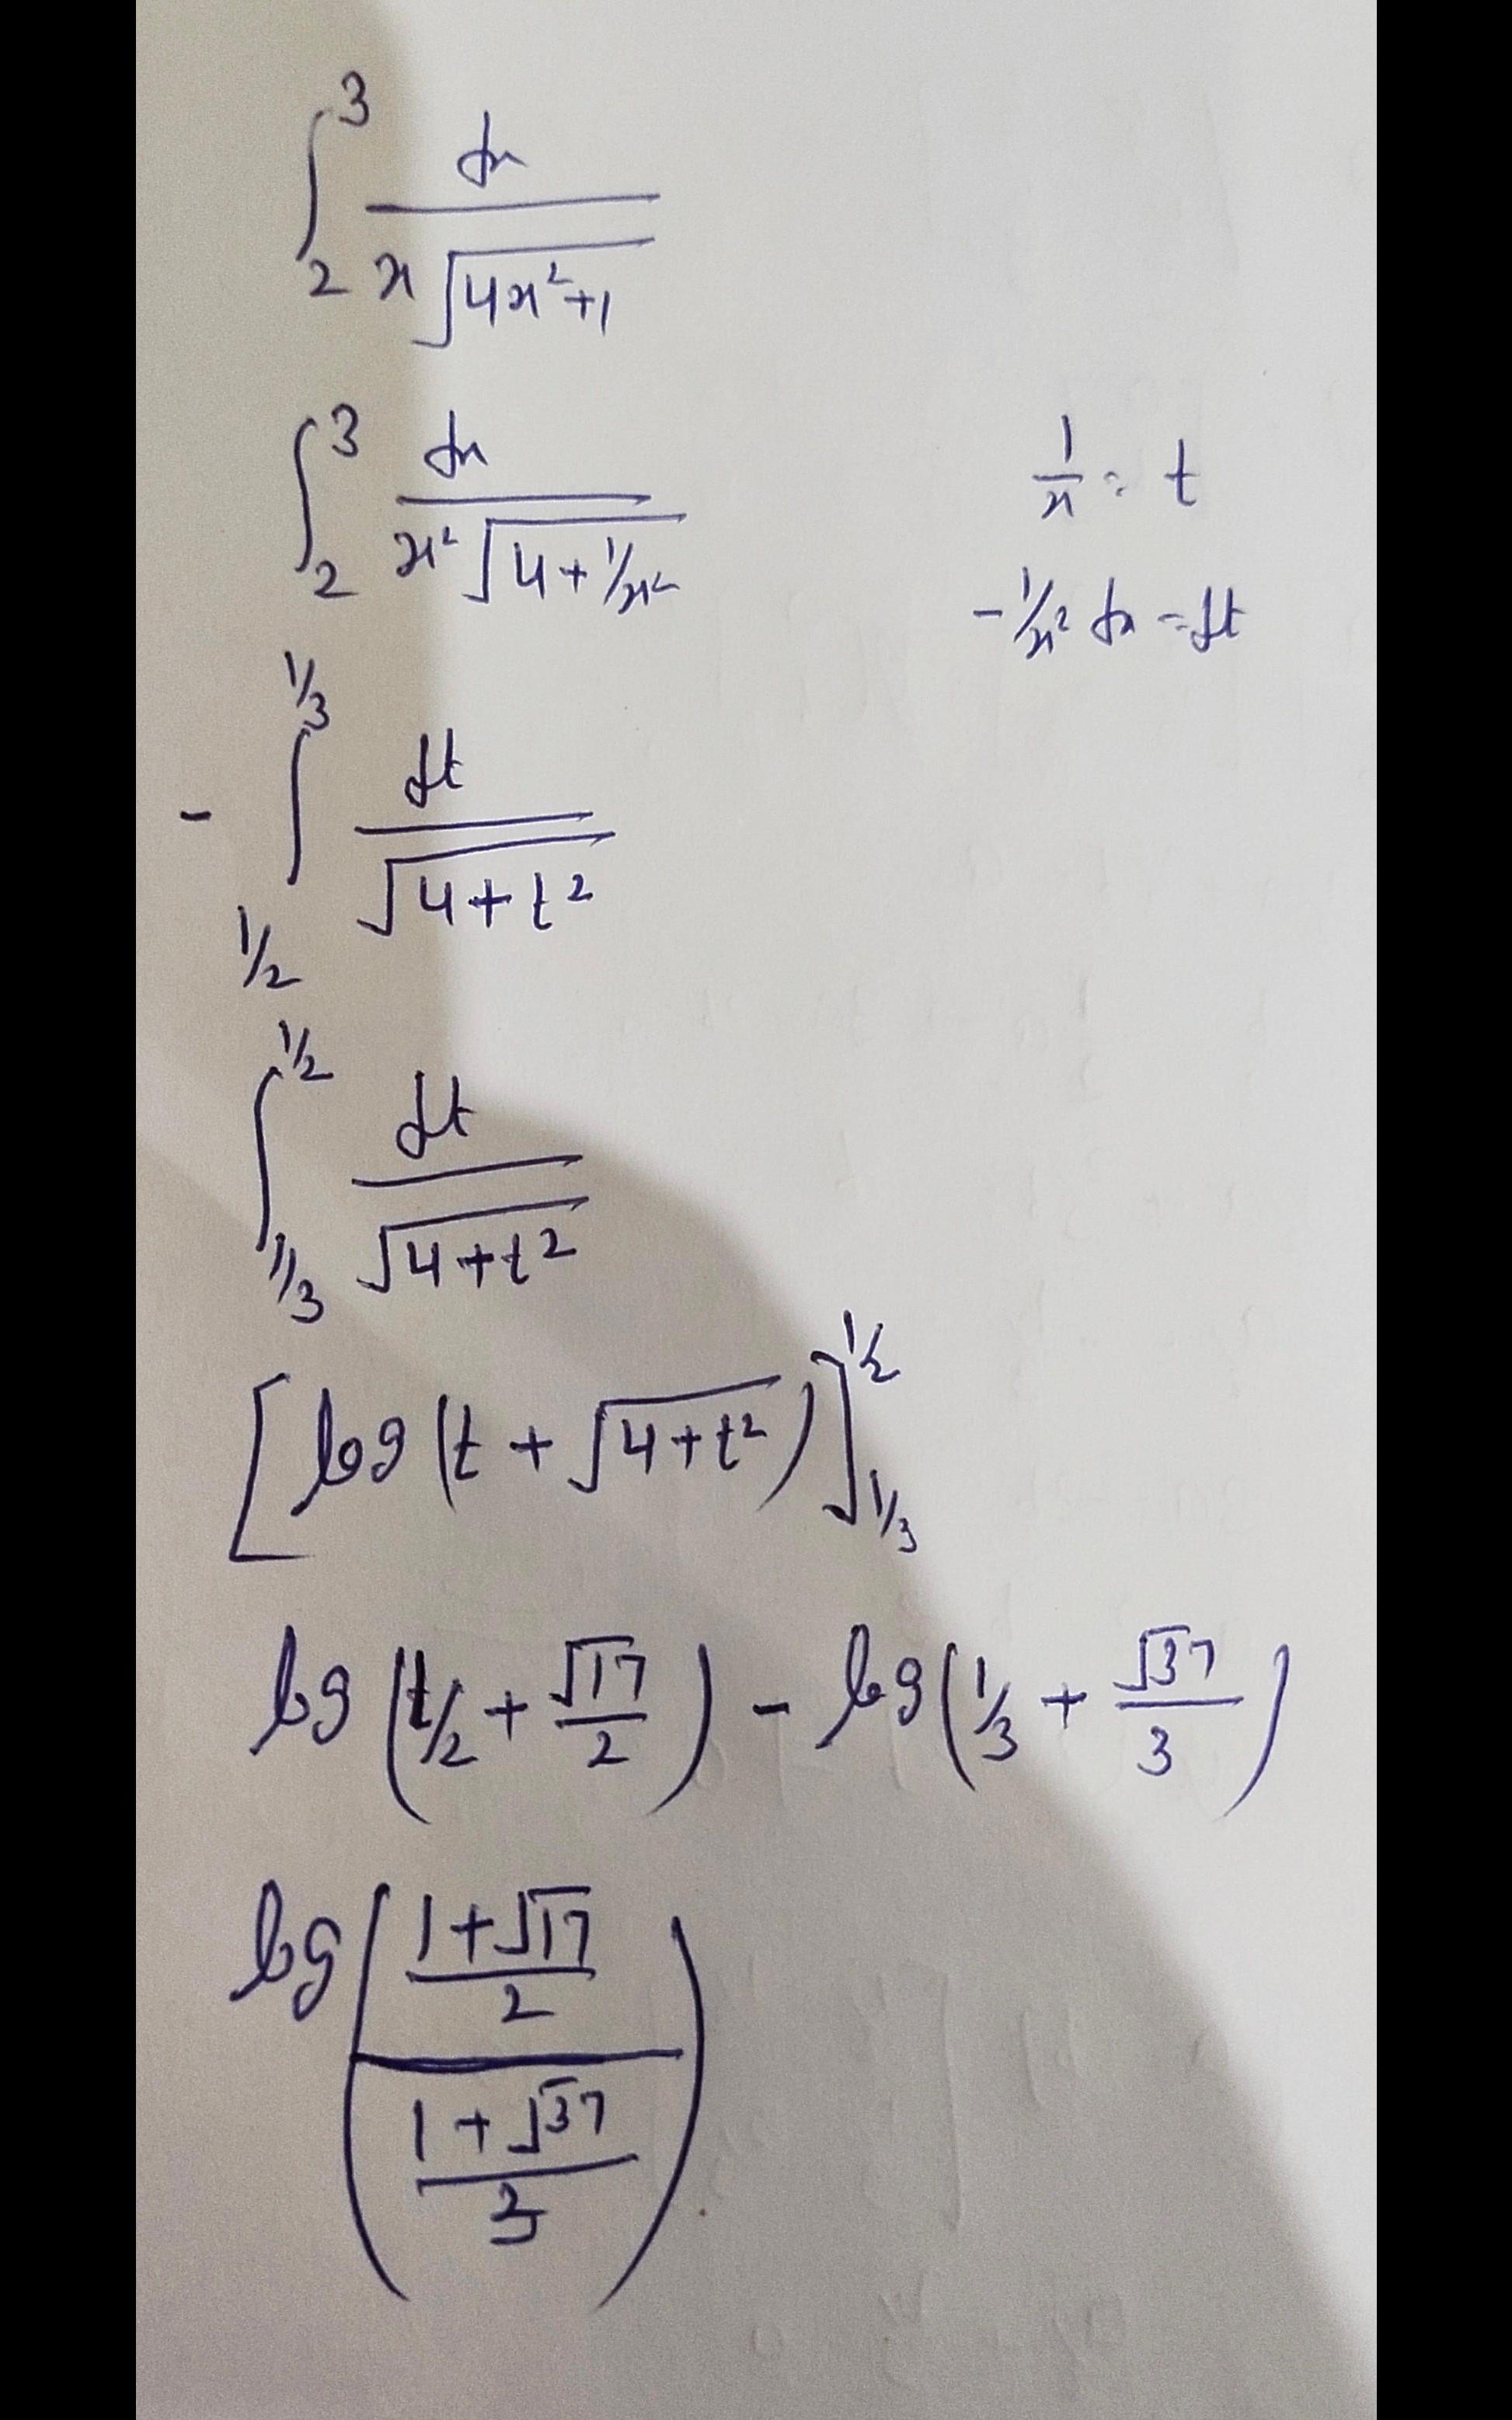 ∫₂³ dx / (x √(4x²+1))
∫₂³ dx / (x² √(4 + 1/x²))
1/x = t
-1/x² dx = dt
- ∫_{1/2}^{1/3} dt / √(4+t²)
∫_{1/3}^{1/2} dt / √(4+t²)
[log (t + √(4+t²))]_{1/3}^{1/2}
log (1/2 + √17/2) - log (1/3 + √37/3)
log (((1+√17)/2) / ((1+√37)/3))